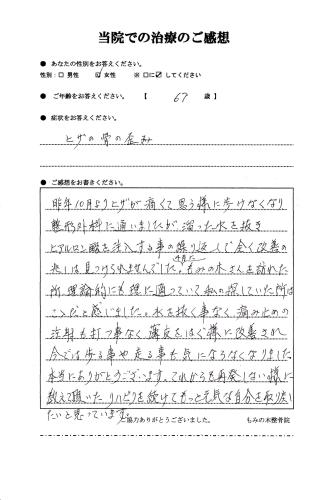 当院での治療のご感想
● あなたの性別をお答えください。
性別：□ 男性 ☑ 女性 ※ □に☑してください
● ご年齢をお答えください。 【 67 歳 】
● 症状をお答えください。
ヒザの骨の歪み
● ご感想をお書きください。
昨年10月よりヒザが痛くて思う様に歩けなくなり
整形外科に通いましたが溜った水を抜き
ヒアルロン酸を注入する事の繰り返しで全く改善の
兆しは見つけられませんでした。4月にもみの木さんを訪れた
所、理論的にも理に適っていて私の探していた所は
ここだと感じました。水を抜く事なく、痛み止めの
注射も打つ事なく、薄皮をはぐ様に改善され
今では歩る事や走る事も気にならなくなりました
本当にありがとうございます。これからも再発しない様に
教えて頂いたリハビリを続けてもっと元気な自分を取り戻し
たいと思っています。
ご協力ありがとうございました。 もみの木整骨院